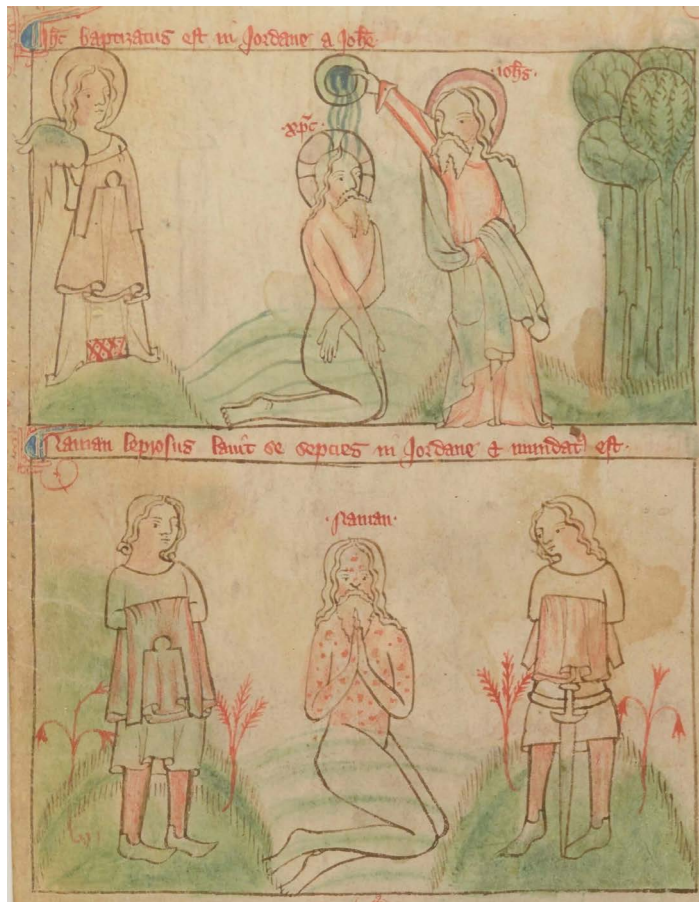 Jhc baptizatus est in Jordane a Johe
xpc
iohs
Naman leprosus lauit se sepcies in Jordane et mundat est
Naman